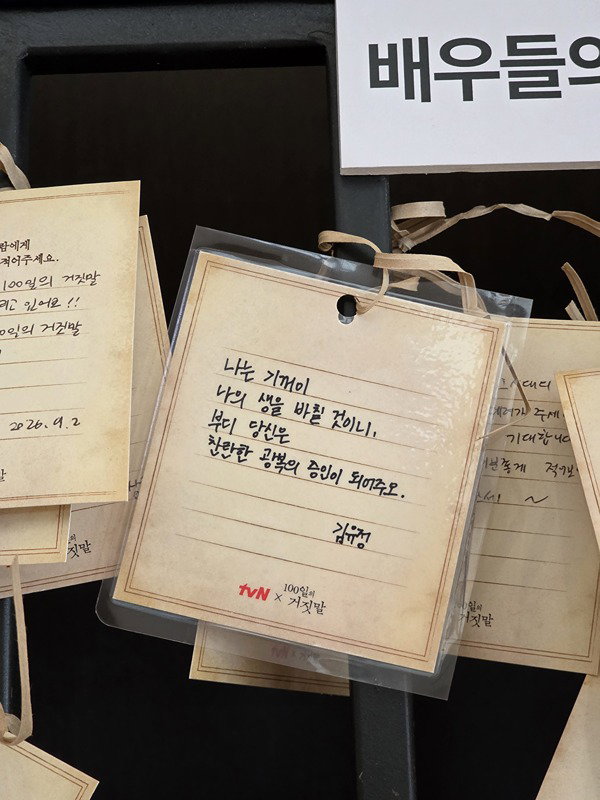 배우들의
람에게
적어주세요.
100일의 거짓말
고 있어요!!
일의 거짓말
2026.9.2
나는 기꺼이
나의 생을 바칠 것이니,
부디 당신은
찬란한 광복의 증인이 되어주오.
김유정
tvN × 100일의 거짓말
짓말
가 주세
기대합니다
적어보
~
100일의
거짓말
tvN ×